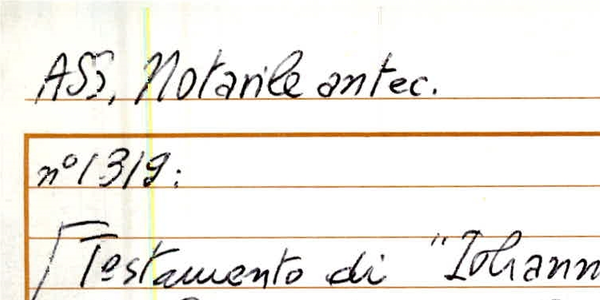 ASS, Notarile antec.
nº 1319:
[Testamento di "Iohann